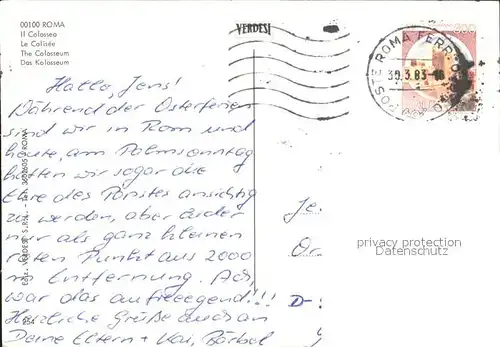 00100 ROMA
Il Colosseo
Le Colisée
The Colosseum
Das Kolosseum
VERDESI
POSTE ROMA FERR.
30.3.83
Hallo, Jens!
Während der Osterferien
sind wir in Rom und
heute, am Palmsonntag
hatten wir sogar die
Ehre des Papstes ansichtig
zu werden, aber leider
nur als ganz kleinen
roten Punkt aus 2000
m Entfernung. Ach,
war das aufregend!!!
Herzliche Grüße auch an
Deine Eltern + Kai, Bärbel
Je
Or
D-
privacy protection
Datenschutz